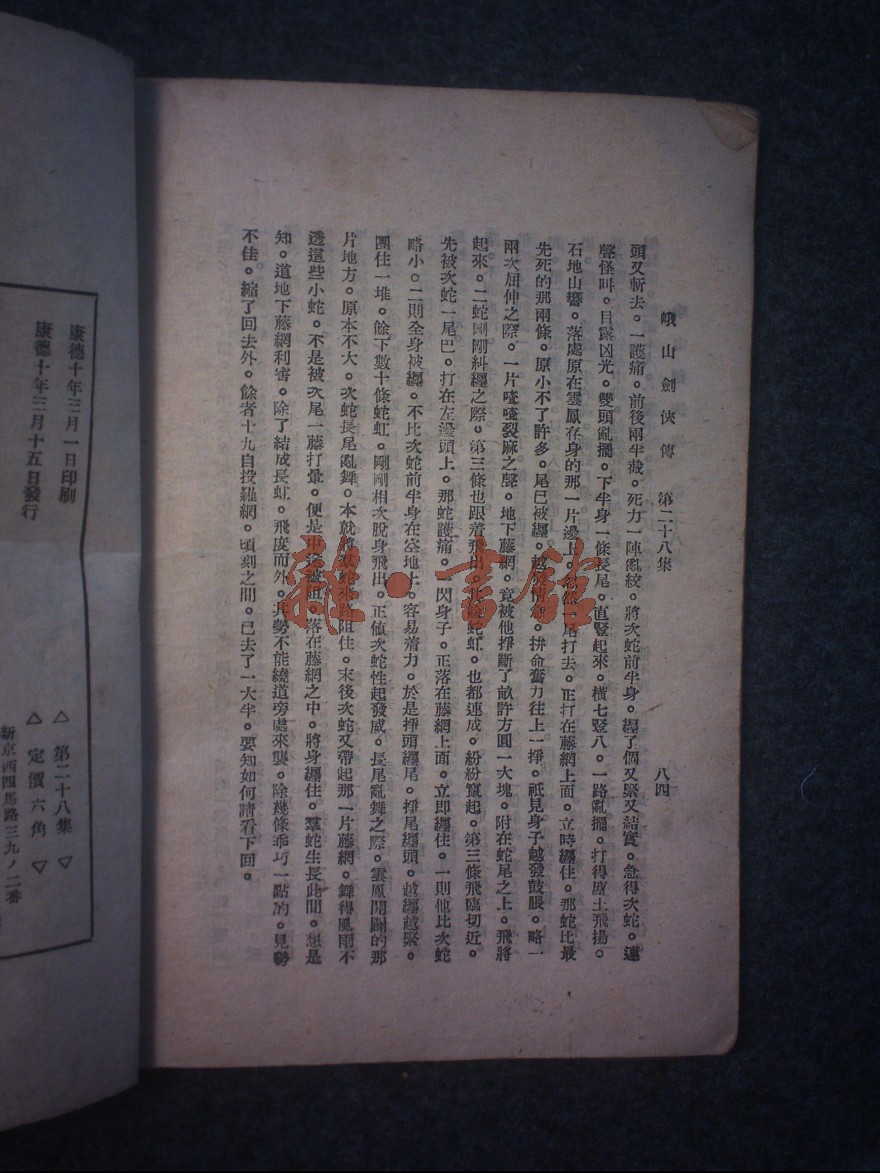 峨山劍俠傳　第二十八集　八四
頭又斬去。一護痛。前後兩半截。死力一陣亂絞。將次蛇前半身。纏了個又緊又結實。急得次蛇。連
聲怪叫。目露凶光。雙頭亂擺。下半身一條長尾。直豎起來。橫七豎八。一路亂擺。打得塵土飛揚。
石地山響。落處原在雲鳳存身的那一片邊上。忽然一尾打去。正打在藤網上面。立時纏住。那蛇比最
先死的那兩條。原小不了許多。尾巴被纏。越發情急。拚命奮力往上一掙。祇見身子越發鼓脹。略一
兩次屈伸之際。一片喳喳裂麻之聲。地下藤網。竟被他掙斷了畝許方圓一大塊。附在蛇尾之上。飛將
起來。二蛇剛剛糾纏之際。第三條也跟着飛出。其餘蛇虹。也都連成。紛紛竄起。第三條飛臨切近。
先被次蛇一尾巴。打在左邊頭上。那蛇護痛。一閃身子。正落在藤網上面。立即纏住。一則他比次蛇
略小。二則全身被纏。不比次蛇前半身在空地上。容易着力。於是掙頭纏尾。掙尾纏頭。越纏越緊。
團住一堆。餘下數十條蛇虹。剛剛相次脫身飛出。正値次蛇性起發威。長尾亂舞之際。雲鳳開闢的那
片地方。原本不大。次蛇長尾亂舞。本就將羣蛇來路阻住。末後次蛇又帶起那一片藤網。舞得風雨不
透這些小蛇。不是被次尾一藤打暈。便是中途被阻。落在藤網之中。將身纏住。羣蛇生長此間。想是
知。道地下藤網利害。除了結成長虹。飛度而外。其勢不能繞道旁處來襲。除幾條乖巧一點的。見勢
不佳。縮了回去外。餘者十九自投羅網。頃刻之間。已去了一大半。要知如何請看下回。
康德十年三月一日印刷
康德十年三月十五日發行
△　第二十八集　▽
△　定價六角　▽
新京西四馬路三九ノ二番
龍·書館